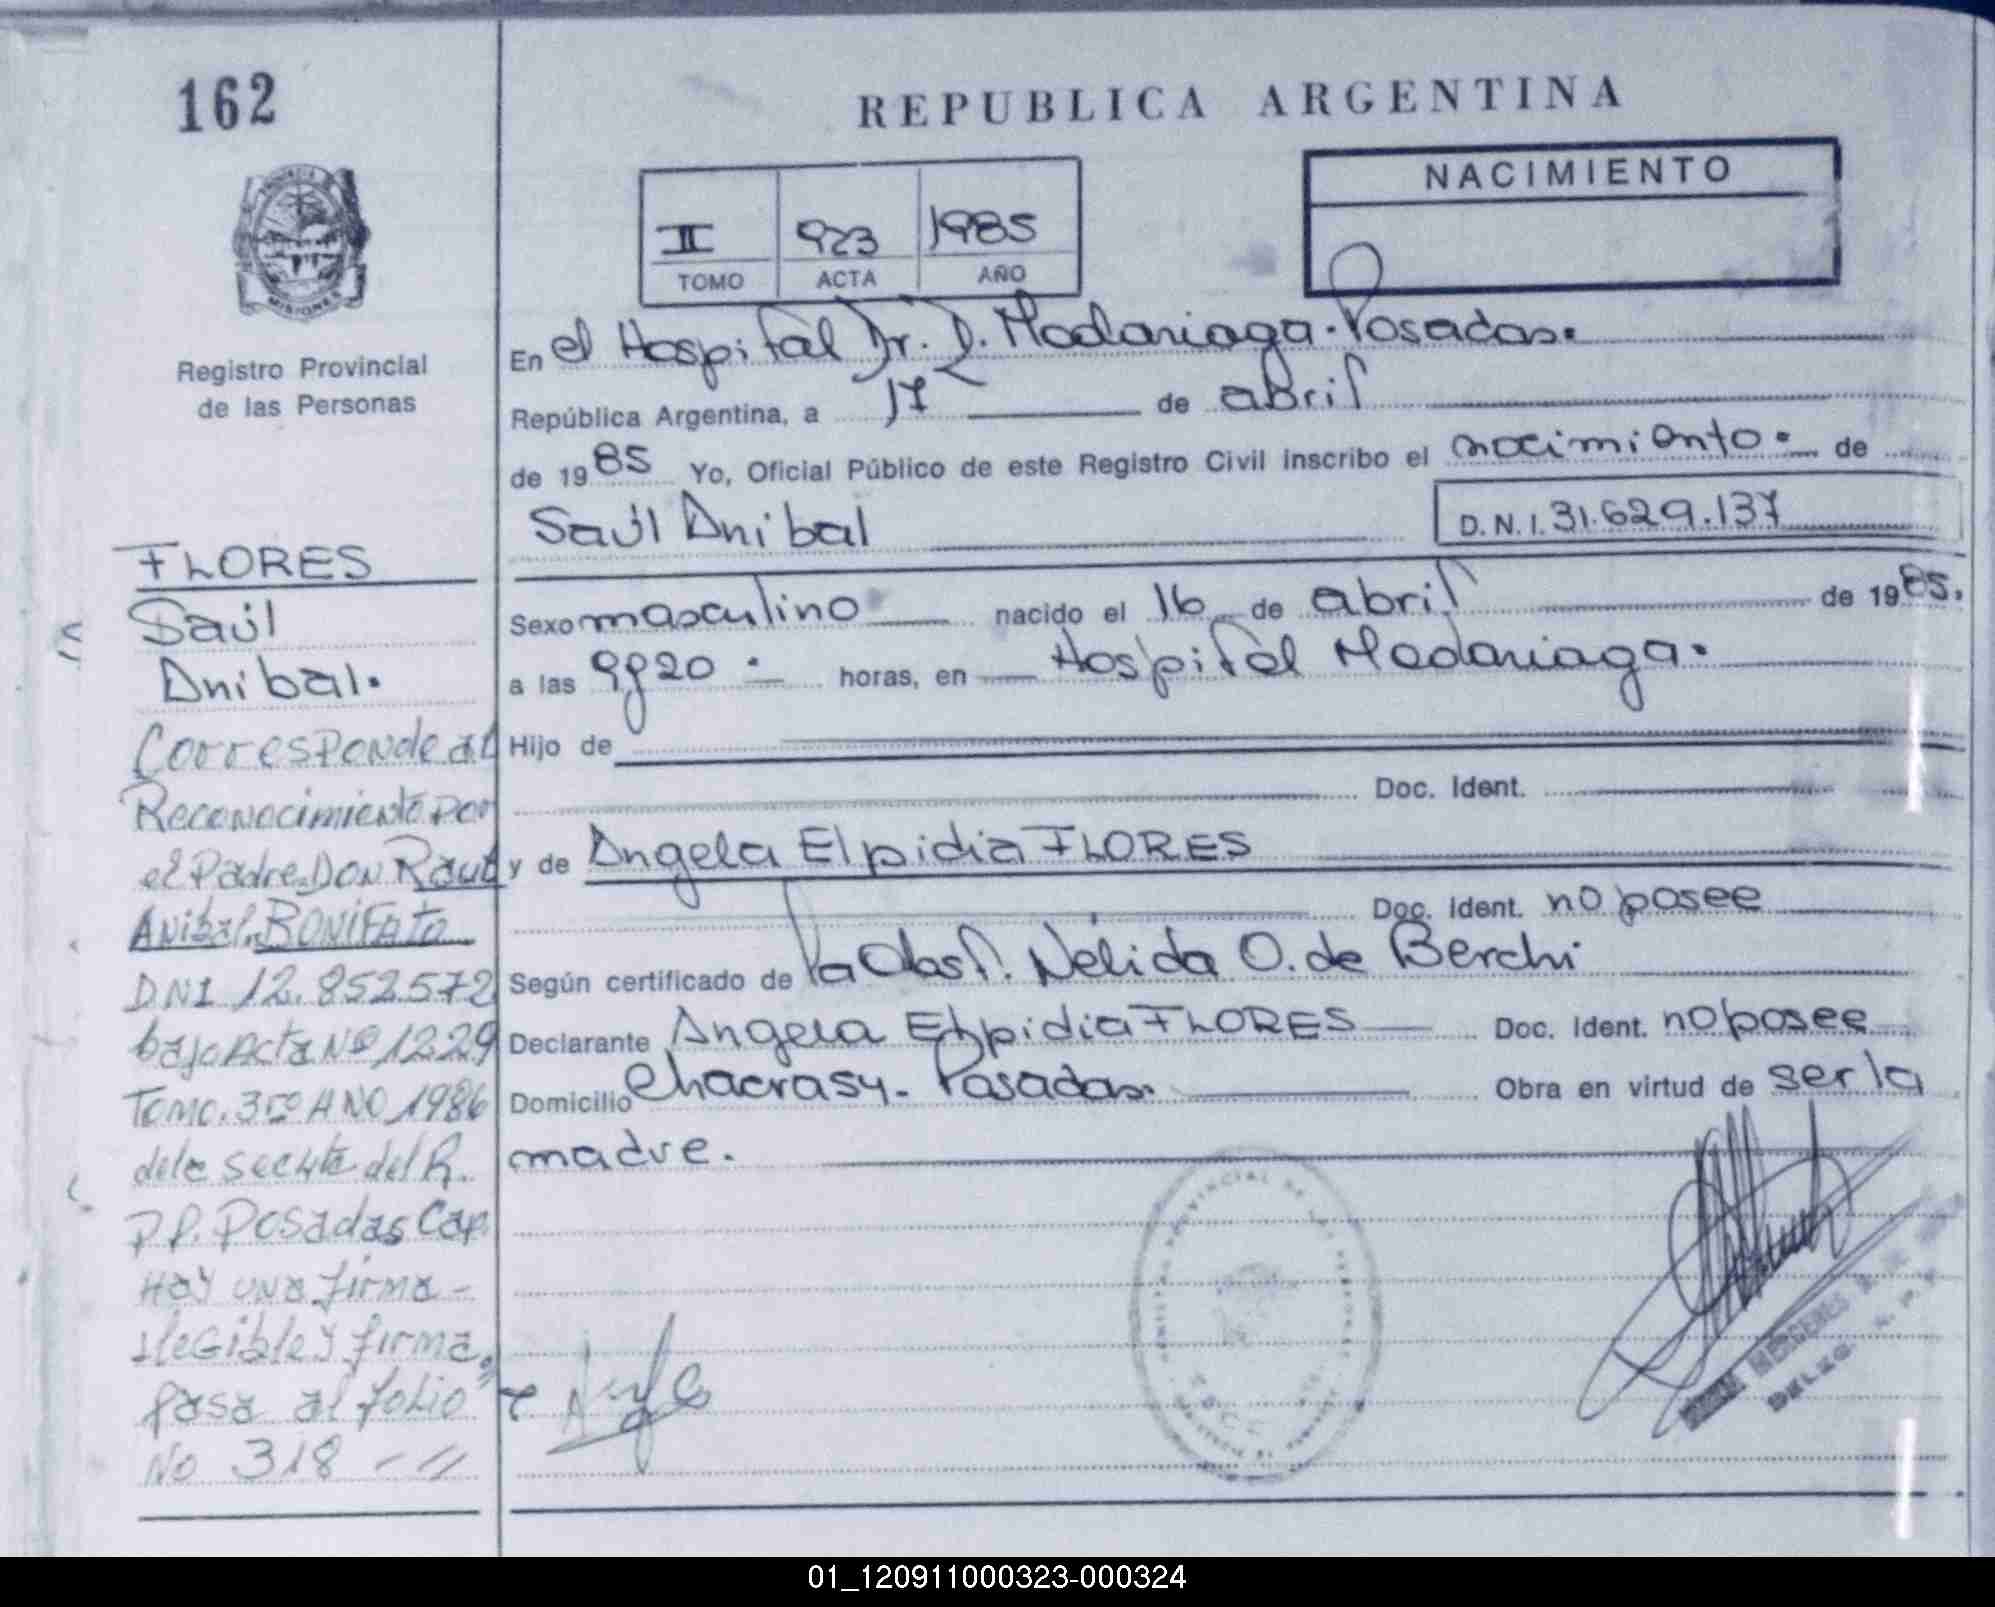 162
REPUBLICA ARGENTINA
NACIMIENTO
II 923 1985
TOMO ACTA AÑO
PROVINCIA DE
MISIONES
Registro Provincial
de las Personas
En el Hospital Dr. R. Madariaga. Posadas.
República Argentina, a 17 de abril
de 1985 Yo, Oficial Público de este Registro Civil inscribo el nacimiento. de
Saúl Anibal D.N.I. 31.629.137
Sexo masculino nacido el 16 de abril de 1985.
a las 9y20 horas, en Hospital Madariaga.
Hijo de
Doc. Ident.
y de Angela Elpidia FLORES
Doc. Ident. no posee
Según certificado de la Obst. Nélida O. de Berchi
Declarante Angela Elpidia FLORES Doc. Ident. no posee
Domicilio Chacrasy. Posadas. Obra en virtud de ser la
madre.
FLORES
Saúl
Anibal.
Corresponde al
Reconocimiento por
el Padre Don Raul
Anibal BONIFATO
DNI 12.852572
bajo Acta Nº 1229
Tomo. 3º AÑO 1986
de la Secc 4ta del R.
P.P. Posadas Cap.
Hay una firma
ilegible y firma
pasa al folio
No 318
01_120911000323-000324